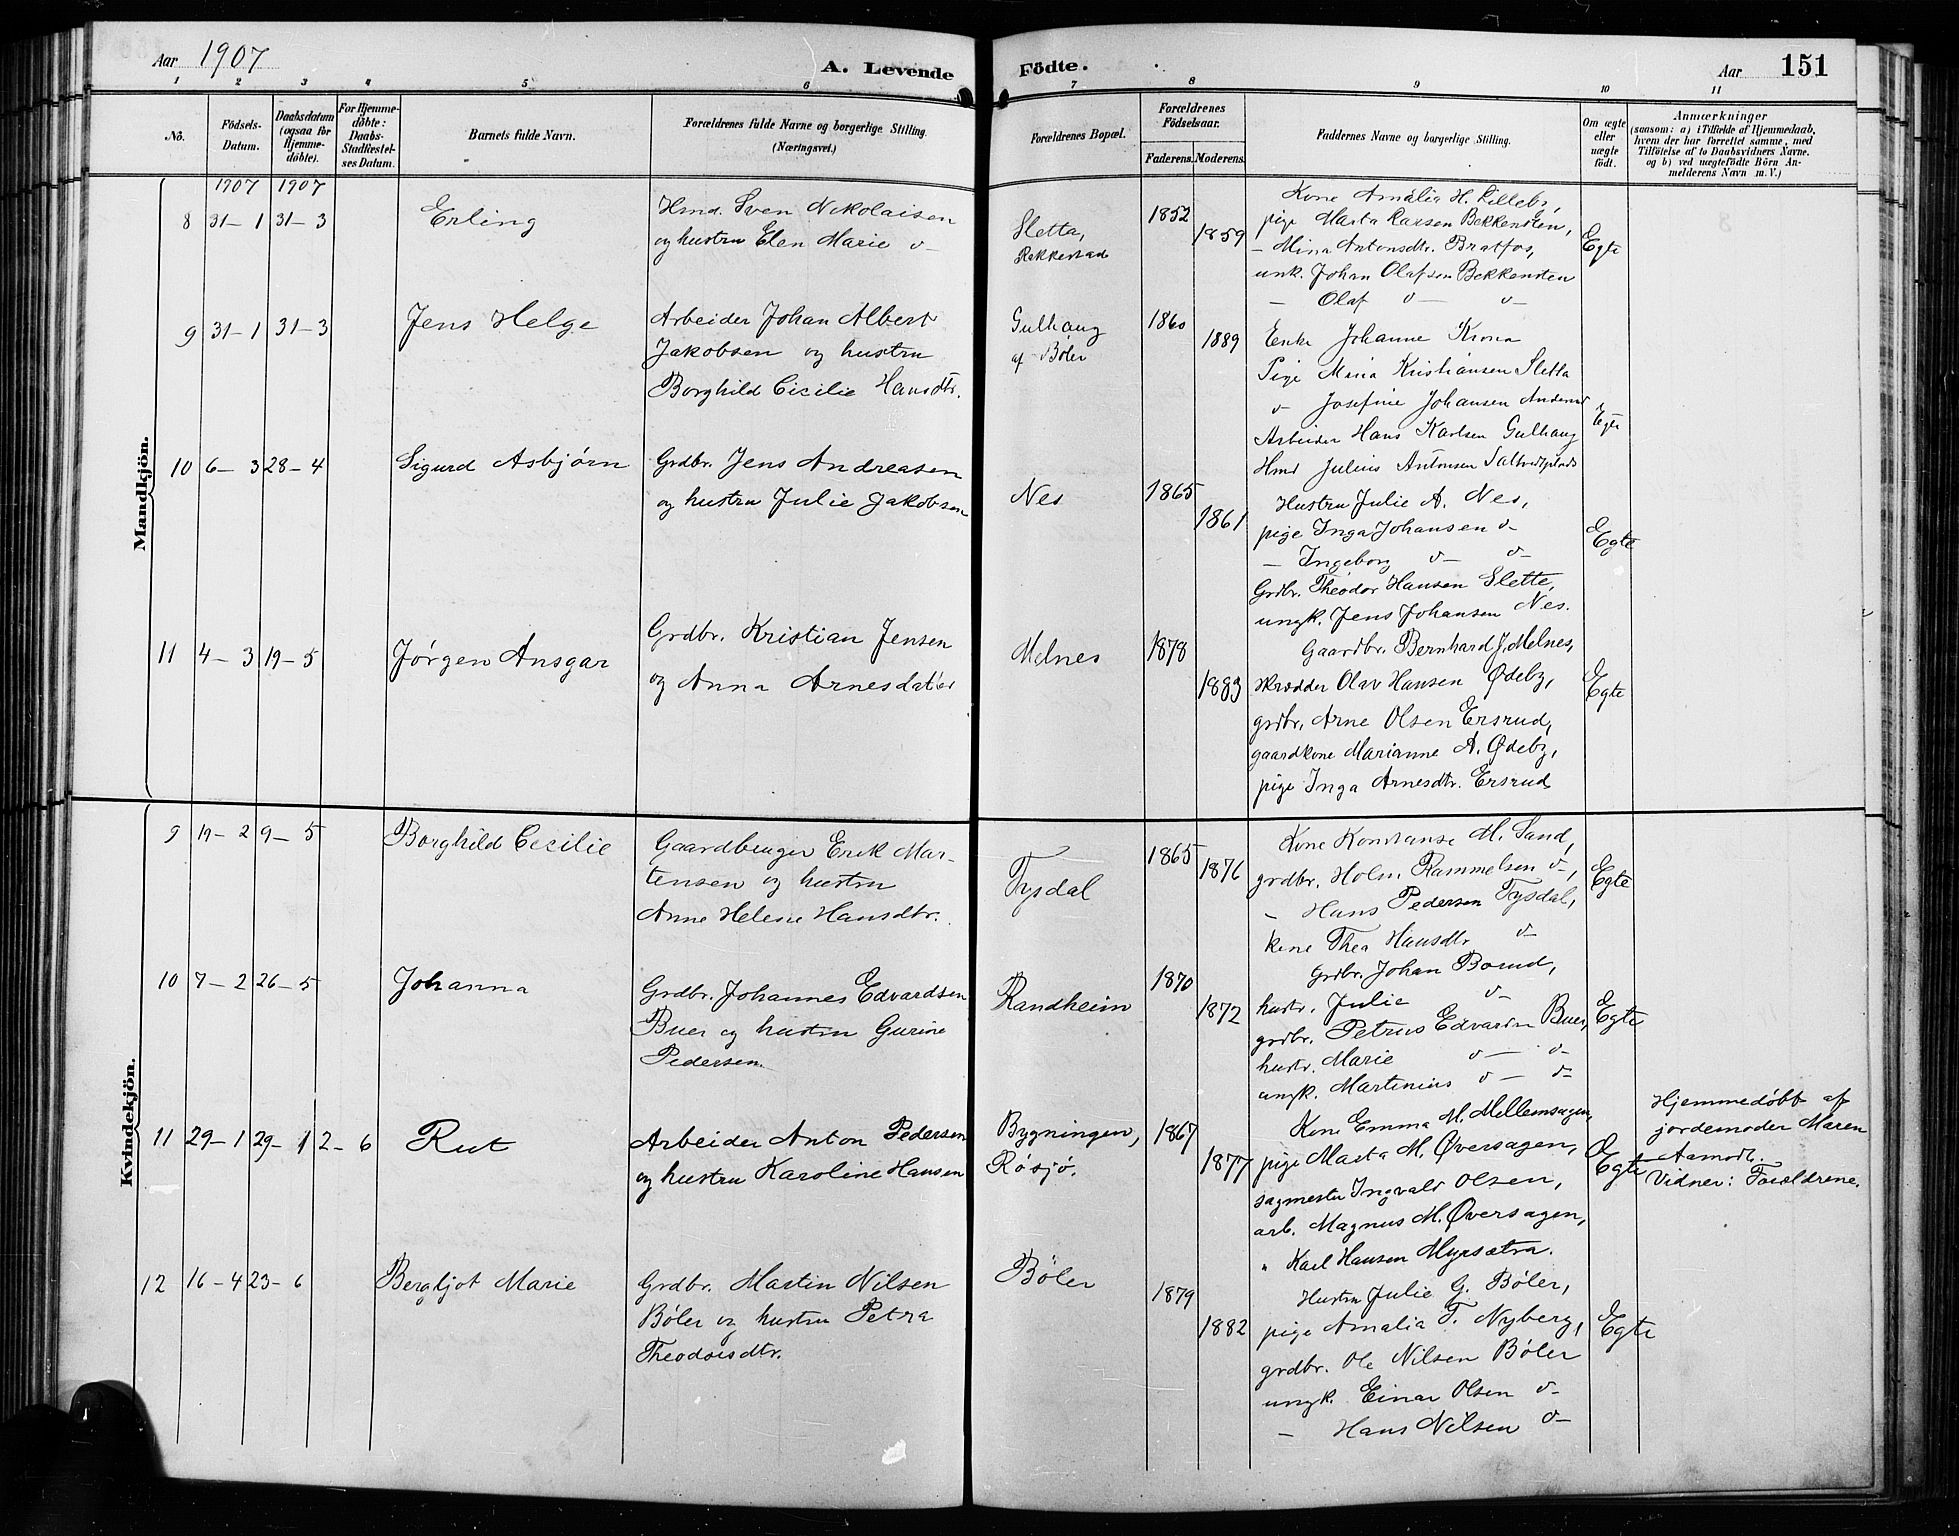 Aar 1907
A. Levende Födte.
Aar 151
1 2 3 4 5 6 7 8 9 10 11
No.
Födsels-Datum.
Daabsdatum (ogsaa for Hjemme-döbte).
For Hjemme-döbte: Daabs-Stadfestel-ses Datum.
Barnets fulde Navn.
Forældrenes fulde Navne og borgerlige Stilling. (Næringsvei.)
Forældrenes Bopæl.
Forældrenes Födselsaar.
Faderens. Moderens.
Faddernes Navne og borgerlige Stilling.
Om ægte eller uægte født.
Anmærkninger
(saasom: a) i Tilfælde af Hjemmedaab,
hvem der har forrettet samme, med
Tilföielse af to Daabsvidners Navne.
og b) ved uægtefödte Börn An-
melderens Navn m. V.)
Mandkjön.
1907 1907
8 31–1 31–3 Erling
Hmd. Sven Nikolaisen
og hustru Elen Marie v–
Sletta,
Rakkestad
1852
1859
Kone Amalia H. Lillebr,
pige Marta Larsen Bekkensten,
– Mina Antonsdtr. Bratfos,
unk. Johan Olafsen Bekkensten
– Olaf v– v–
Egte
9 31–1 31–3 Jens Helge
Arbeider Johan Albert
Jakobsen og hustru
Borghild Cicilie Hansdtr.
Gulhaug
af Bøler
1860
1889
Enke Johanne Krona
Pige Maria Kristiansen Sletta
v– Josefine Johansen
Arbeider Hans Karlsen Gulhaug
Hmd Julius Antonsen
Egte
10 6–3 28–4 Sigurd Asbjørn
Grdbr. Jens Andreasen
og hustru Julie Jakobsen
Nes
1865
1861
Hustru Julie A. Nes,
pige Inga Johansen v–
– Ingeborg v– v–
Grdbr. Theodor Hansen Slette,
ungk. Jens Johansen Nes.
Egte
11 4–3 19–5 Jørgen Ansgar
Grdbr. Kristian Jensen
og Anna Arnesdatter
Melnes
1878
1883
Gaardbr. Bernhard J. Melnes,
skrædder Olav Hansen Ødeby,
grdbr. Arne Olsen Ersrud,
gaardkone Marianne A. Ødeby,
pige Inga Arnesdtr. Ersrud
Egte
Kvindekjön.
9 19–2 9–5 Borghild Cecilie
Gaardbruger Erik Mar-
tensen og hustru
Anne Helene Hansdtr.
Tysdal
1865
1876
Kone Konstanse M. Sand,
grdbr. Holm. Rammelsen v–,
– Hans Pedersen Tysdal,
kone Thea Hansdtr v–
Egte
10 7–2 26–5 Johanna
Grdbr. Johannes Edvardsen
Buer og hustru Gurine
Pedersen.
Randheim
1870
1872
Grdbr. Johan Borud,
hustr. Julie v–
grdbr. Petrus Edvardsn Buer,
hustr. Marie v– v–
ungk. Martinius v– v–
Egte
11 29–1 29–1 2–6 Rut
Arbeider Anton Pedersen
og hustru Karoline Hansen
Bygningen,
Røsjø.
1867
1877
Kone Emma M. Mellemsagen,
pige Marta M. Øversagen,
sagmester Ingvald Olsen,
arb. Magnus M. Øversagen,
" Karl Hansen Myrsætra.
Egte
Hjemmedøbt af
jordemoder Maren
Aamodt.
Vidner: Forældrene.
12 16–4 23–6 Bergljot Marie
Grdbr. Martin Nilsen
Bøler og hustru Petra
Theodorsdtr.
Bøler
1879
1882
Hustru Julie G. Bøler,
pige Amalia T. Nyberg,
grdbr. Ole Nilsen Bøler
ungk. Einar Olsen v–
– Hans Nilsen v–
Egte